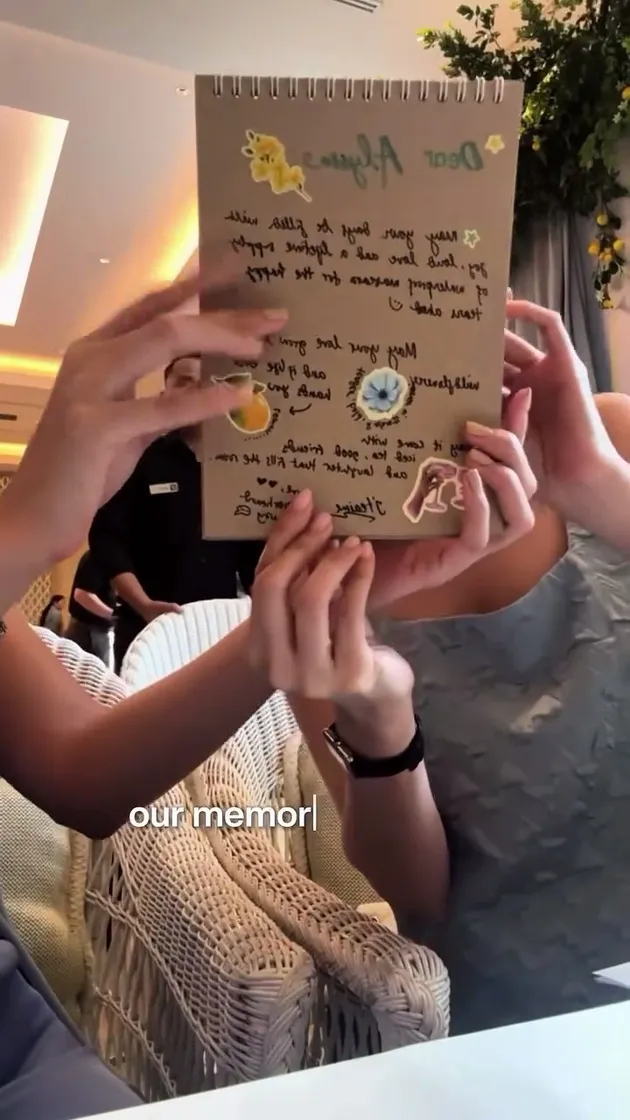 Dear Alyssa
May your days be filled with
joy, loud love and a lifetime supply
of waterproof mascara for the happy
tears ahead
May your love grow
wildflowers and if life
hands you
it come with
iced tea, good friends
and laughter that fill the room.
our memor